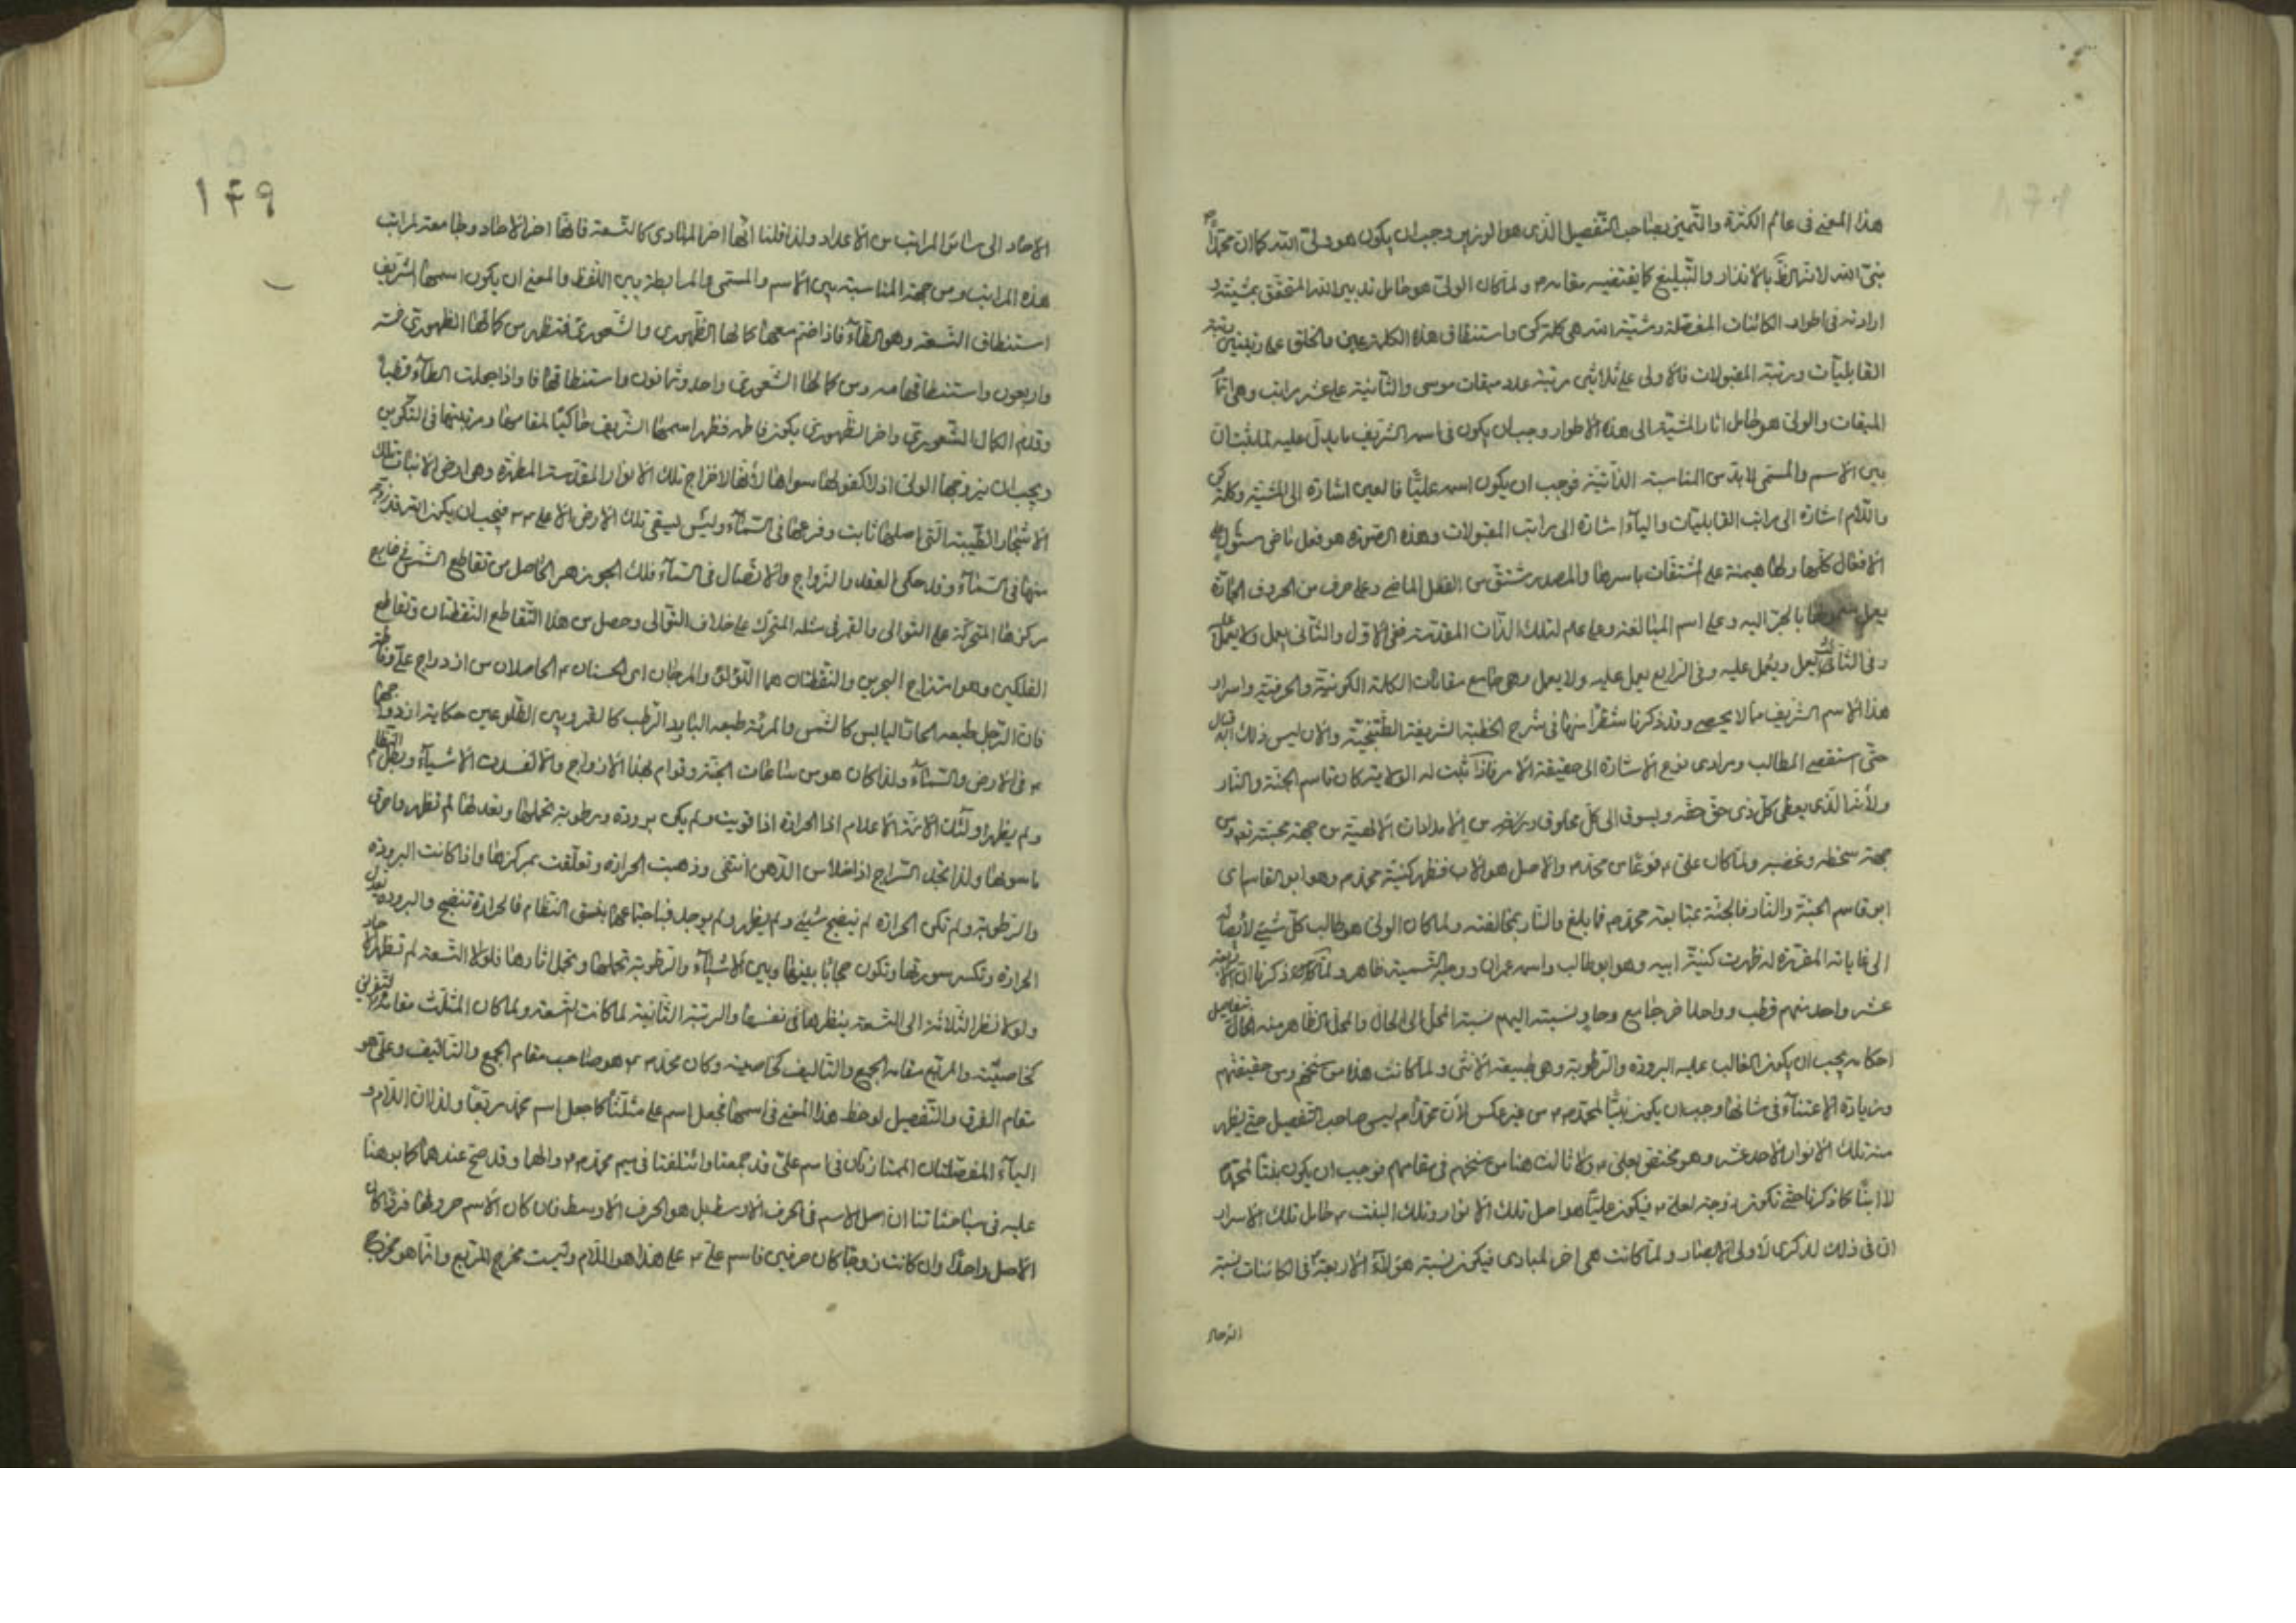 هذا المعنى فى عالم الكثرة والتميز بصاحب التفصيل الذى هو الوزير وجب ان يكون هو ولى الله كما ان محمدا ص
نبى الله لانه بالانذار والتبليغ كما يقتضيه مقامه ولما كان الولى هو حامل تدبير الله المتحقق بمشيته و
ارادته فى اطوار الكائنات المفصلة ومشية الله هى كلمة كن واستنطاق هذه الكلمة عين والخلق على رتبتين رتبة
القابليات ورتبة المقبولات فالاولى على ثلاثين مرتبة عدد ميقات موسى والثانية على عشر مراتب وهى اتمام
الميقات والولى هو حامل اثار المشية الى هذه الاطوار وجب ان يكون فى اسمه الشريف ما يدل عليه لما ثبت ان
بين الاسم والمسمى لا بد من المناسبة الذاتية فوجب ان يكون اسمه عليّا فالعين اشارة الى المشية وكلمة كن
واللام اشارة الى مراتب القابليات والياء اشارة الى مراتب المقبولات وهذه الصورة هو فعل ماض مستول على
الافعال كلها ولها هيمنة على المشتقات باسرها والمصدر مشتق من الفعل الماضى وعلى حرف من الحروف الجارّة
يعمل بالجر اليه وعلى اسم المبالغة وعلى علم لتلك الذات المقدسة ففى الاول والثانى يعمل ولا يعمل عليه
وفى الثالث يعمل ويعمل عليه وفى الرابع يعمل عليه ولا يعمل وهى جامع مقامات الكلمة الكونية والحرفية واسرار
هذا الاسم الشريف مما لا يحصى وقد ذكرنا شطرا منها فى شرح الخطبة الشريفة الطتنجية والان ليس لذلك اقبال
حتى استقصى المطالب ومرادى نوع الاشارة الى حقيقة الامر فاذا ثبت له الولاية كان قاسم الجنة والنار
ولانه الذى يعطى كل ذى حق حقه ويسوق الى كل مخلوق رزقه من الامدادات الالهية من جهة محبته ومن
جهة سخطه وغضبه ولما كان على فرعا من محمد والاصل هو الاب فظهر كنية محمد وهو ابو القاسم اى
ابو قاسم الجنة والنار فالجنة بمتابعة محمد فما بلغ والنار بمخالفته ولما كان الولى هو طالب كل شىء لايصاله
الى غاياته المقررة له ظهرت كنية ابيه وهو ابو طالب واسمه عمران ووجه التسمية ظاهر ولما ذكرنا ان الاربعة
عشر واحد منهم قطب وواحد اخر جامع وحاو نسبته اليهم نسبة المحل الى الحال والمحل الظاهر منه تفاصيل
احكامه يجب ان يكون الغالب عليه البرودة والرطوبة وهى طبيعة الانثى ولما كانت هذه من سنخهم ومن حقيقتهم
وزيادة الاعتناء فى شانها وجب ان يكون بنتا لمحمد من غير عكس لان محمدا لم ليس صاحب التفصيل حتى يظهر
منه تلك الانوار الاحد عشر وهو مختص بعلى ولا ثالث هنا من سنخهم فى مقامهم فوجب ان يكون بنتا لمحمد
لا ابنا كما ذكرنا حتى تكون زوجة لعلى فيكون عليّا هو اصل تلك الانوار وتلك البنت حامل تلك الاسرار
ان فى ذلك لذكرى لاولى الابصار ولما كانت هى اخر المبادى فيكون نسبة هؤلاء الاربعة فى الكائنات نسبة
الاحاد
١٤٩
الاحاد الى سائر المراتب من الاعداد ولذا قلنا انها اخر المبادى كالتسعة فانها اخر الاحاد وجامعة لمراتب
هذه المراتب ومن جهة المناسبة بين الاسم والمسمى والمرابطة بين اللفظ والمعنى ان يكون اسمها الشريف
استنطاق التسعة وهو الطاء فاذا ضم معها كمالها الظهورى والشعورى فتظهر من كمالها الظهورى خمسة
واربعون واستنطاقها مه ومن كمالها الشعورى واحد وثمانون واستنطاقها فا واذا جعلت الطاء قطبا
وقدم الكمال الشعورى واخر الظهورى يكون فاطمه فظهر اسمها الشريف حاكيا لمقامها ومرتبتها فى التكوين
ويجب ان يزوجها الولى اذ لا كفو لها سواه لانها لاخراج تلك الانوار المقدسة المطهرة وهى ارض لانبات تلك
الاشجار الطيبة التى اصلها ثابت وفرعها فى السماء وليس يسقى تلك الارض الا على فيجب ان يكون الله قد زوجه
منها فى السماء وقد حكى العقد والزواج والاتصال فى السماء فلك الجوزهر الحاصل من تقاطع الشمس فى خارج
مركزها المتحركة على التوالى والقمر فى مثله المتحرك على خلاف التوالى وحصل من هذا التقاطع النقطتان وتقاطع
الفلكين وهو امتزاج البحرين والنقطتان هما اللؤلؤ والمرجان اى الحسنان الحاصلان من ازدواج على وفاطمة
فان الرجل طبعه الحار اليابس كالشمس والمرئة طبعه البارد الرطب كالقمر وبين الطلوعين حكاية ازدواجهما
فى الارض والسماء ولذا كان هو من ساعات الجنة وقوام لهذا الازواج والا لفسدت الاشياء وبطل النظام
ولم يظهر اولئك الائمة الاعلام اذ الحرارة اذا قويت ولم يكن برودة ورطوبة تحملها وتعدلها لم تظهر واحرق
ما سواها ولذا تجد السراج اذا خلا من الدهن انتفى وذهبت الحرارة وتعلقت بمركزها واذا كانت البرودة
والرطوبة ولم تكن الحرارة لم ينضج شىء ولم يظهر ولم يوجد فباجتماعهما يتسق النظام فالحرارة تنضج والبرودة تعدل
الحرارة وتكسر سورتها وتكون حجابا بينها وبين الاشياء والرطوبة تحملها وتحمل اثارها فلولا التسعة لم تظهر
ولولا نظر الثلاثة الى التسعة بنظرها فى نفسها والرتبة الثانية لما كانت التسعة ولما كان المثلث مقامه التفريق
كخاصيته والمربع مقامه الجمع والتاليف كخاصيته وكان محمد هو صاحب مقام الجمع والتاليف وعلى هو
مقام الفرق والتفصيل لوحظ هذا المعنى فى اسمها فجعل اسم على مثلثا كما جعل اسم محمد مربعا ولذا ان اللام و
الياء المفصلتان الممتازتان فى اسم على قد جمعتا وائتلفتا فى ميم محمد والها وقد صح عندهم كما برهنا
عليه فى مباحثاتنا ان اصل الاسم فى الحرف الاوسط بل هو الحرف الاوسط فان كان الاسم حروفها فردا كان
الاصل واحدا وان كانت زوجا كان حرفين فاسم على على هذا هو اللام وليست مخرج للربع وانما هو مخرج